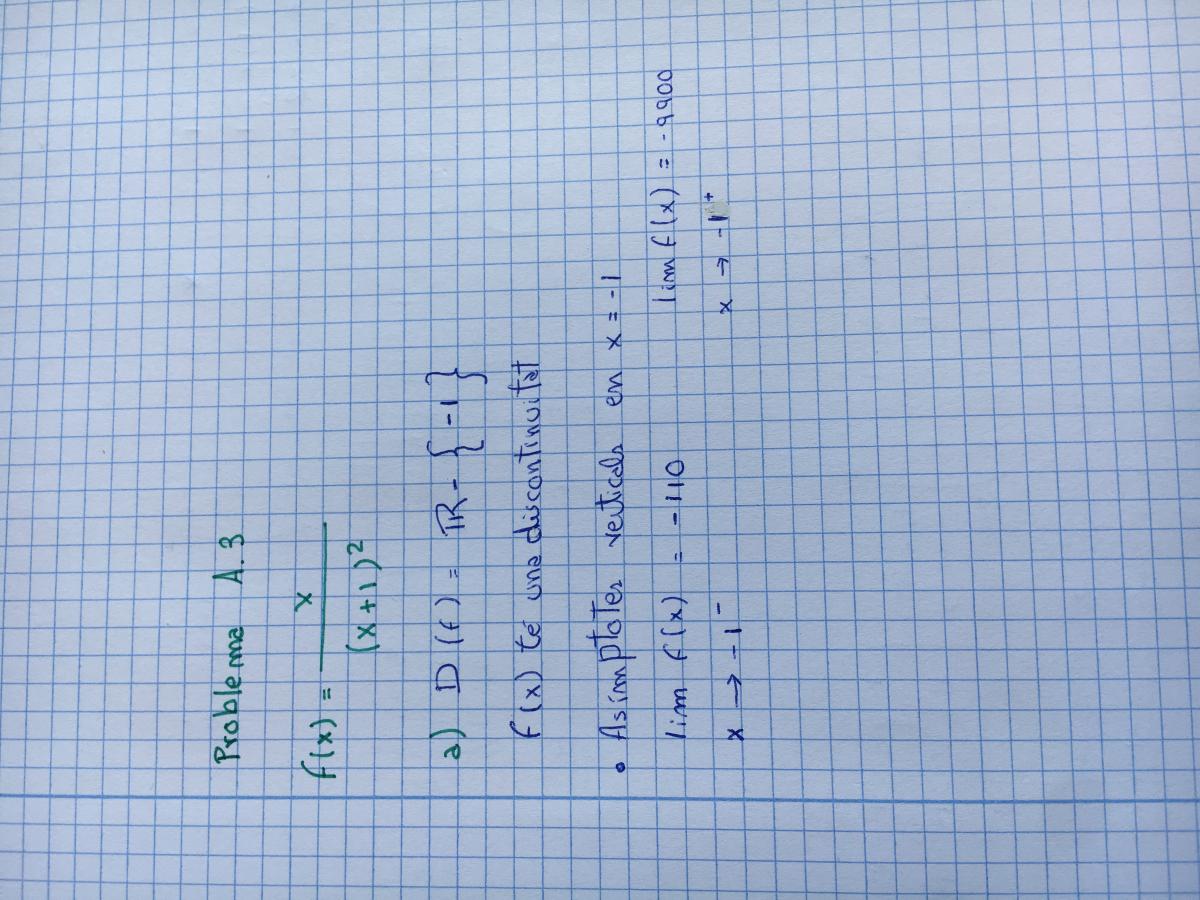 Problema A.3
f(x) = x
(x+1)²
a) D(f) = ℝ - { -1 }
f(x) té una discontinuitat
• Asímptotes verticals en x = -1
lim f(x) = -110 lim f(x) = -9900
x → -1⁻ x → -1⁺